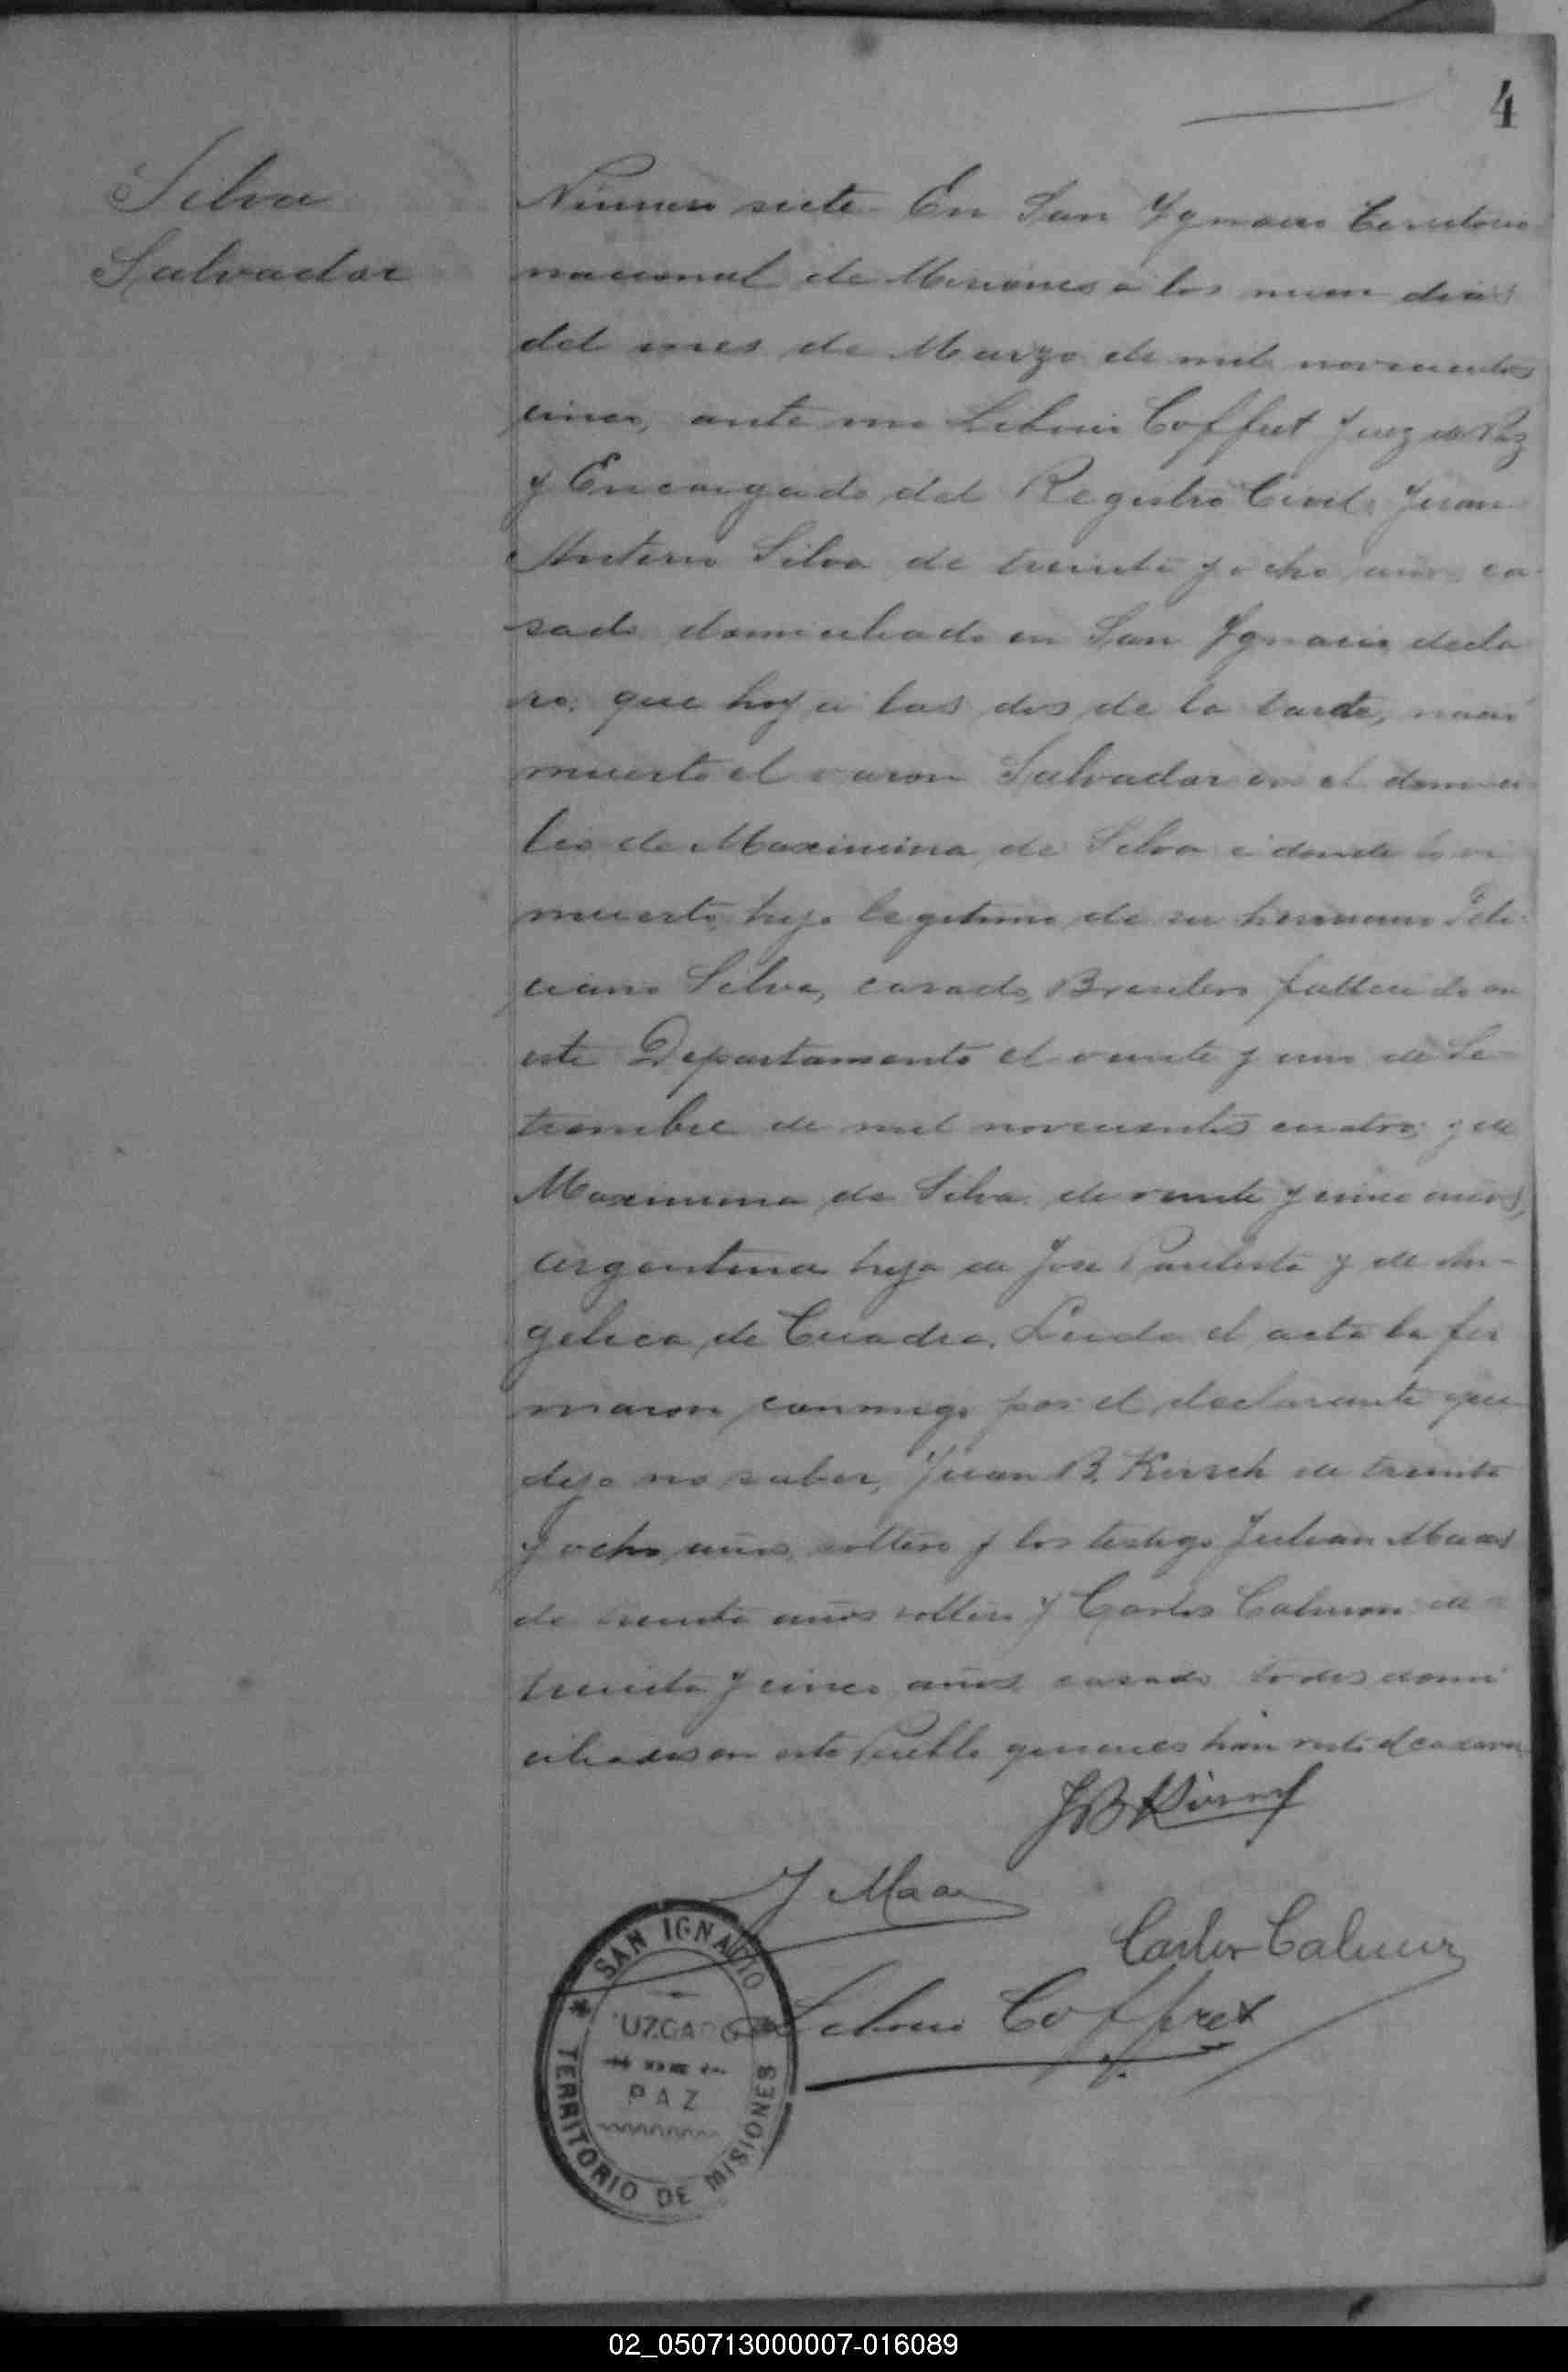 4
Silva
Salvador
Número siete En San Ygnacio Territorio
nacional de Misiones á los nueve dias
del mes de Marzo de mil novecientos
cinco, ante mi Coffret Juez de Paz
y Encargado del Registro Civil, Juan
Antonio Silva de treinta y ocho años ca
sado domiciliado en San Ygnacio decla
ro, que hoy á las dos de la tarde, nació
muerto el varon Salvador en el domici
lio de Maximina de Silva donde
muerto, hijo legitimo de su hermano Feli
ciano Silva, casado, Brasilero fallecido en
este Departamento el veinte y uno de Se
tiembre de mil novecientos cuatro, y de
Maximina de Silva de veinte y cinco años,
argentina hija de José y de An-
gelica de Cuadra. Leida el acta la fir
maron conmigo por el declarante que
dijo no saber, Juan B. Kirsch de treinta
y ocho años, soltero y los testigo Julian Maas
de treinta años soltero y Carlos de
treinta y cinco años casado todos domi
ciliados en este Pueblo quienes han visto el cadaver
JB Kirsch
J Maas
Carlos
Coffret
SAN IGNACIO
JUZGADO
DE
PAZ
TERRITORIO DE MISIONES
02_050713000007-016089